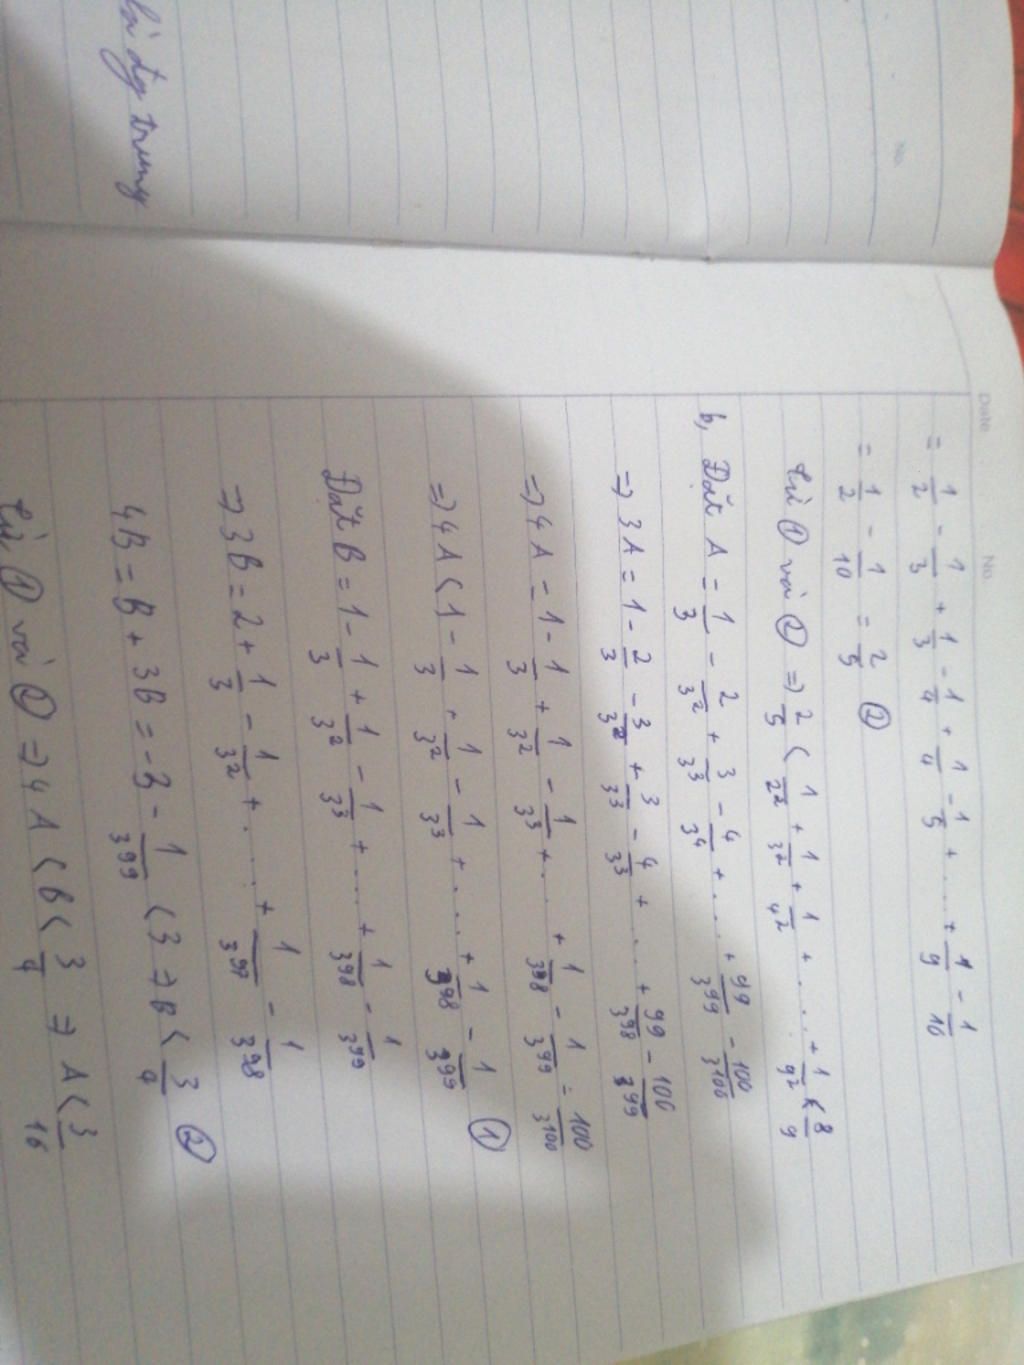 là đg trung
No.
Date No.
= 1/2 - 1/3 + 1/3 - 1/4 + 1/4 - 1/5 + .... + 1/9 - 1/10
= 1/2 - 1/10 = 2/5 ②
Từ ① và ② => 2/5 < 1/2² + 1/3² + 1/4² + .... + 1/9² < 8/9
b, Đặt A = 1/3 - 2/3² + 3/3³ - 4/3⁴ + .... + 99/3⁹⁹ - 100/3¹⁰⁰
=> 3A = 1 - 2/3 - 3/3² + 3/3³ - 4/3³ + ... + 99/3⁹⁸ - 100/3⁹⁹
=> 4A = 1 - 1/3 + 1/3² - 1/3³ + ... + 1/3⁹⁸ - 1/3⁹⁹ - 100/3¹⁰⁰
=> 4A < 1 - 1/3 + 1/3² - 1/3³ + .... + 1/3⁹⁸ - 1/3⁹⁹ ①
Đặt B = 1 - 1/3 + 1/3² - 1/3³ + .... + 1/3⁹⁸ - 1/3⁹⁹
=> 3B = 2 + 1/3 - 1/3² + .... + 1/3⁹⁷ - 1/3⁹⁸
4B = B + 3B = -3 - 1/3⁹⁹ < 3 => B < 3/4 ②
Từ ① và ② => 4A < B < 3/4 => A < 3/16